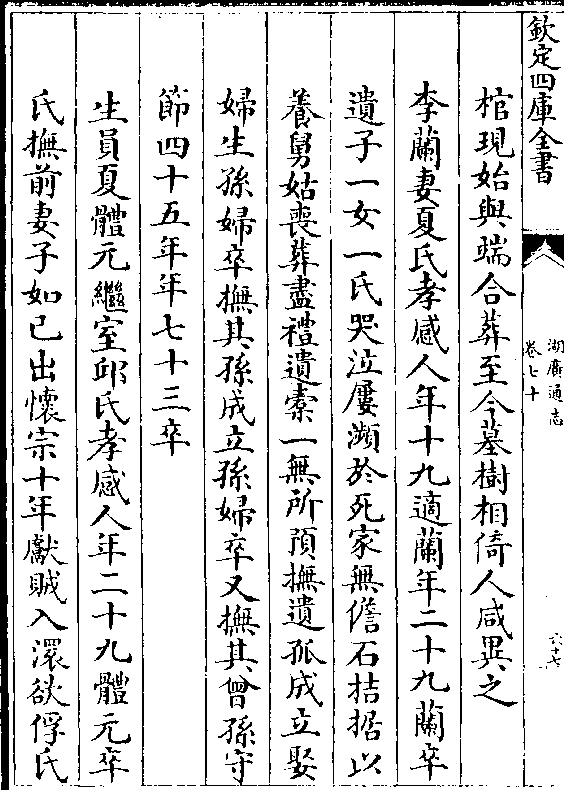 欽定四庫全書
湖廣通志
卷七十
六十七
棺現始與端合葬至今墓樹相倚人咸異之
李蘭妻夏氏孝感人年十九適蘭年二十九蘭卒
遺子一女一氏哭泣屢瀕於死家無儋石拮据以
養舅姑喪葬盡禮遺橐一無所預撫遺孤成立娶
婦生孫婦卒撫其孫成立孫婦卒又撫其曾孫守
節四十五年年七十三卒
生員夏體元繼室邱氏孝感人年二十九體元卒
氏撫前妻子如已出懷宗十年獻賊入澴欲俘氏